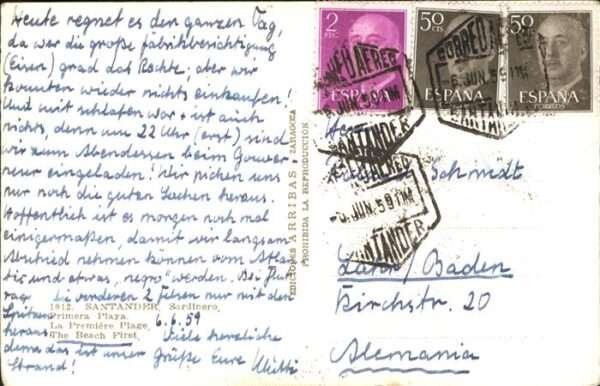 Heute regnet es den ganzen Tag,
da war die große Fabrikbesichtigung
(Eisen) grad das Rechte; aber wir
konnten wieder nichts einkaufen!
Und mit schlafen war's ist auch
nichts, denn um 22 Uhr (erst) sind
wir zum Abendessen beim Gouver-
neur eingeladen! Wir picken uns
nur noch die guten Sachen heraus.
Hoffentlich ist es morgen noch mal
einigermaßen, damit wir langsam
Abschied nehmen können vom Atlan-
tic und etwas „negro" werden. Bei Flut
die vorderen 2 Felsen nur mit den
Spitzen
heraus
denn das ist unser
Strand!
6.6.59
Viele herzliche
Grüße Eure Mutti
1812. SANTANDER. Sardinero,
Primera Playa.
La Première Plage.
The Beach First.
EDICIONES ARRIBAS - ZARAGOZA
PROHIBIDA LA REPRODUCCION
2
PTS.
ESPAÑA
50
CTS
ESPAÑA
CORREOS
50
CTS
ESPAÑA
CORREOS
CORREO AEREO
6 JUN. 59 1M
SANTANDER
Schmidt
Lahr/Baden
Kirchstr. 20
Alemania